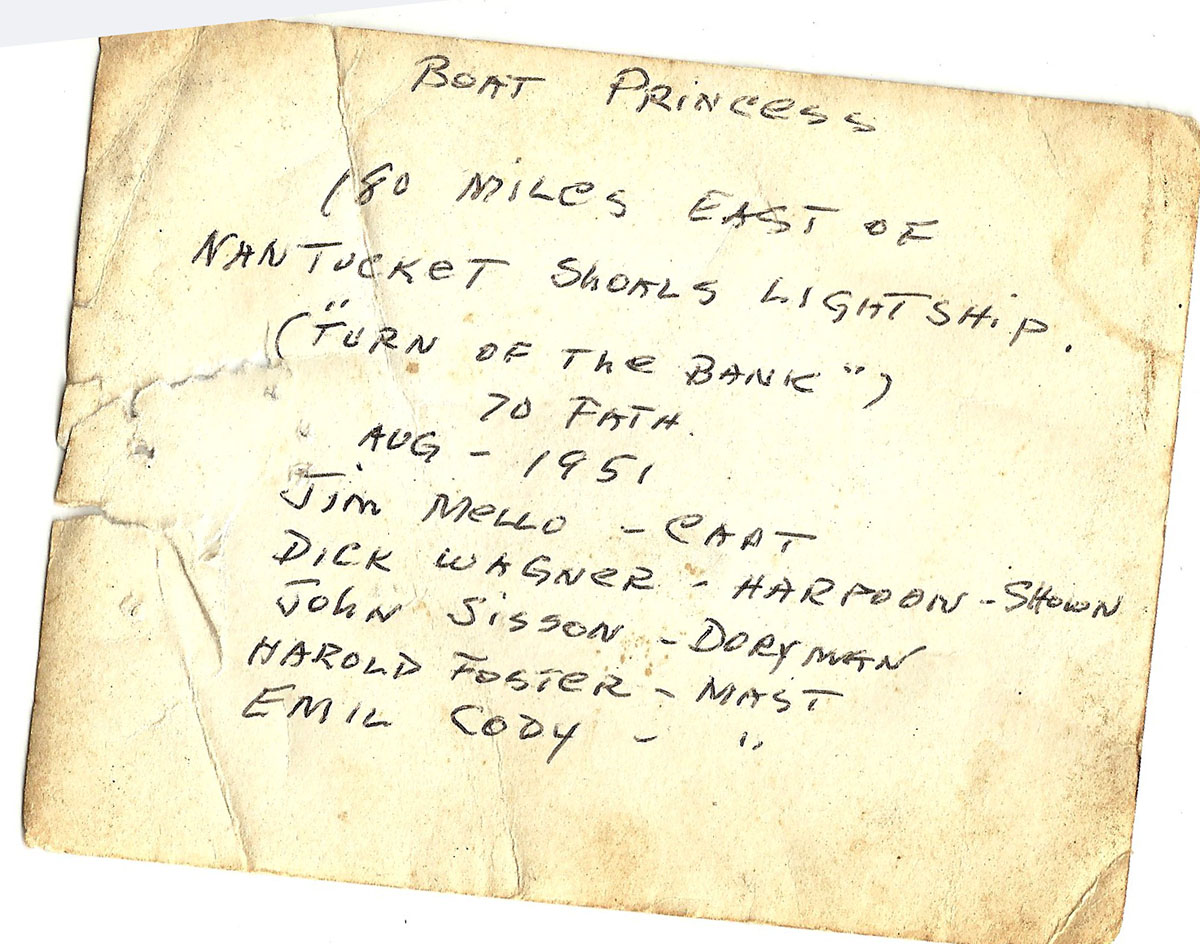 BOAT PRINCESS
(80 MILES EAST OF
NANTUCKET SHOALS LIGHTSHIP.
("TURN OF THE BANK")
70 FATH.
AUG - 1951
JIM MELLO - CAPT
DICK WAGNER - HARPOON - SHOWN
JOHN SISSON - DORYMAN
HAROLD FOSTER - MAST
EMIL CODY - "